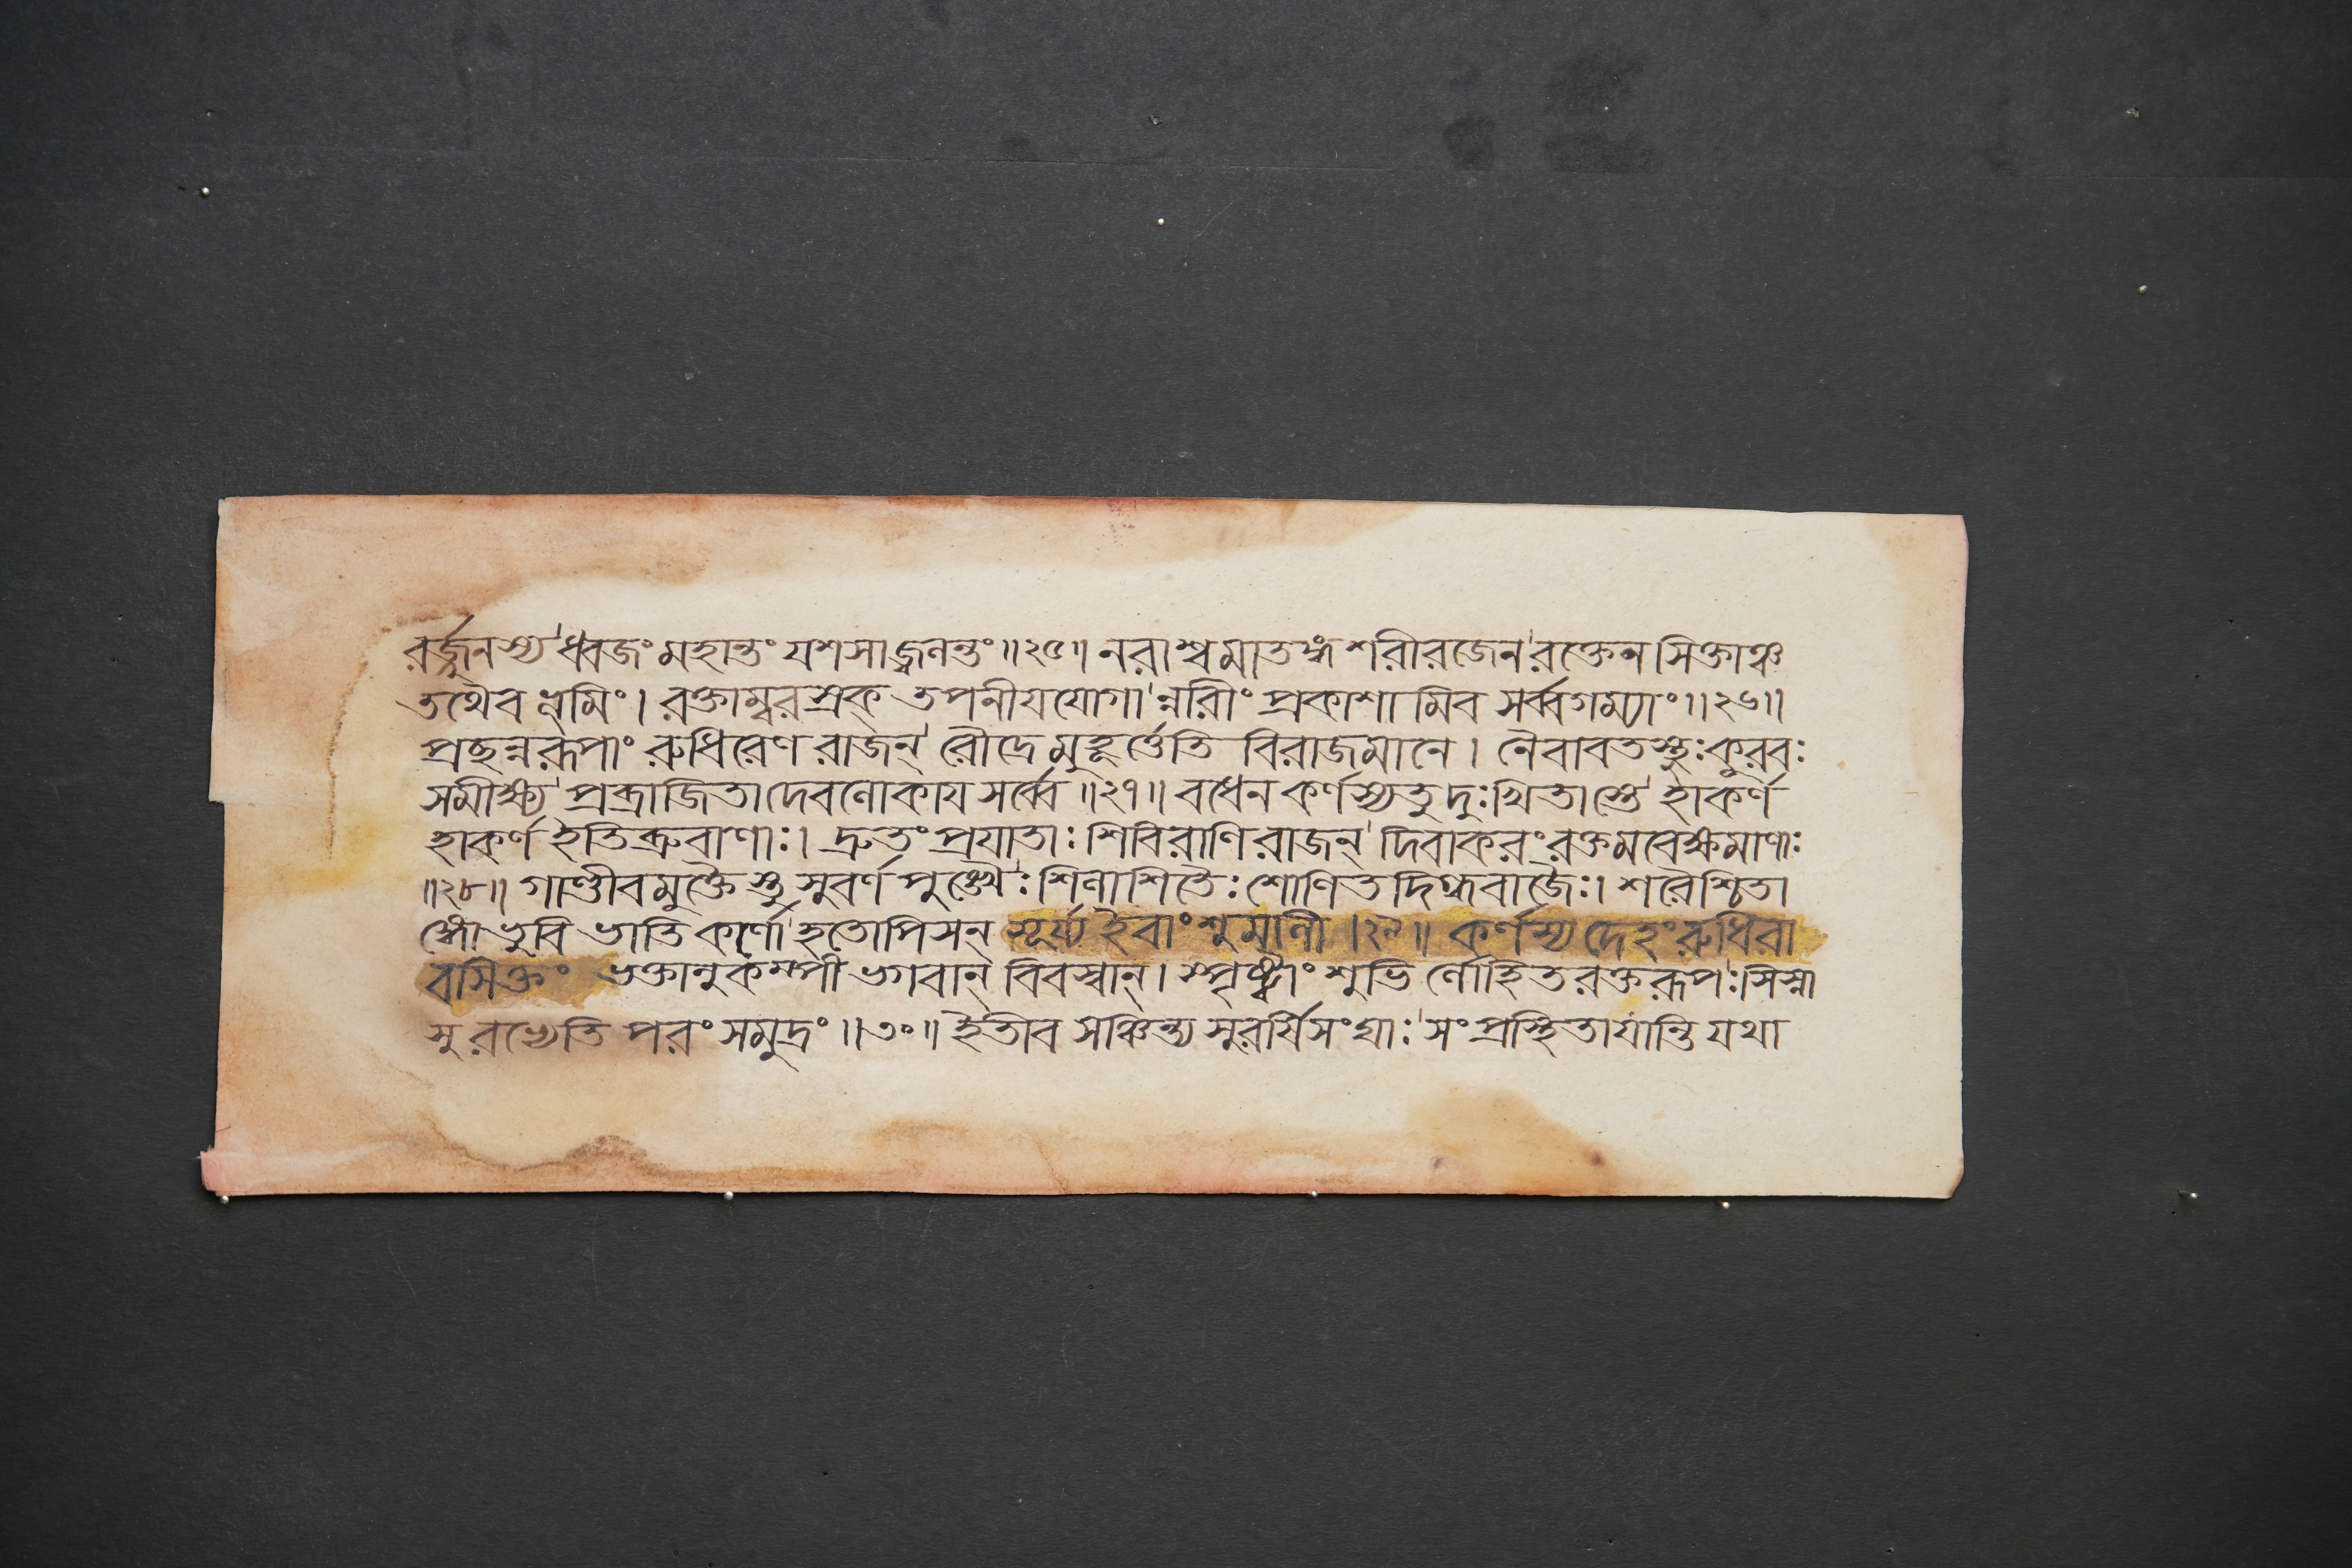 রর্জ্জুনস্য ধ্বজং মহান্তং যশসা জ্বলন্তং॥২৫॥ নরাশ্বমাতঙ্গশরীরজেন রক্তেন সিক্তাঞ্চ
তথৈব ভূমিং। রক্তাম্বরস্রক্ তপনীযযোগা ন্নারীং প্রকাশা মিব সর্ব্বগম্যাং॥২৬॥
প্রছন্নরূপাং রুধিরেণ রাজন্ রৌদ্রে মুহূর্ত্তেতি বিরাজমানে। নৈবাবতস্থুঃ কুরবঃ
সমীক্ষ্য প্রব্রাজিতা দেবলোকায সর্ব্বে॥২৭॥ বধেন কর্ণস্য তু দুঃখিতাস্তে হা কর্ণ
হা কর্ণ ইতি ব্রুবাণাঃ। দ্রুতং প্রযাতাঃ শিবিরাণি রাজন্ দিবাকরং রক্তমবেক্ষমাণাঃ
॥২৮॥ গাণ্ডীবমুক্তৈ স্তু সুবর্ণ পুঙ্খৈঃ শিলাশিতৈঃ শোণিতদিগ্ধবাজৈঃ। শরৈশ্চিতা
ঙ্গো ভুবি ভাতি কর্ণো হতোপি সন্ সূর্য্য ইবাংশুমালী।২৯॥ কর্ণস্য দেহং রুধিরা
বসিক্তং ভক্তানুকম্পী ভগবান্ বিবস্বান্। স্পৃষ্ট্বাংশুভি র্লোহিতরক্তরূপঃ সিস্না
সু রভ্যেতি পরং সমুদ্রং॥৩০॥ ইতীব সঞ্চিন্ত্য সুরর্ষিসংঘাঃ সংপ্রস্থিতা যান্তি যথা